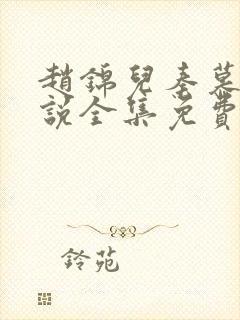 趙錦兒秦慕
說全集免費
鈴苑